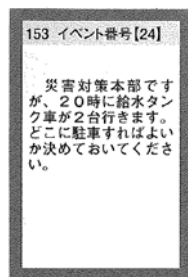 153 イベント番号【24】
災害対策本部です
が、20時に給水タン
ク車が2台行きます。
どこに駐車すればよい
か決めておいてくださ
い。